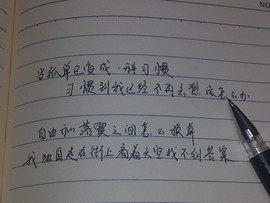 当孤单已变成一种习惯
习惯到我已经不再去想该怎么办
自由和落寞之间怎么换算
我独自走在街上看着天空找不到答案